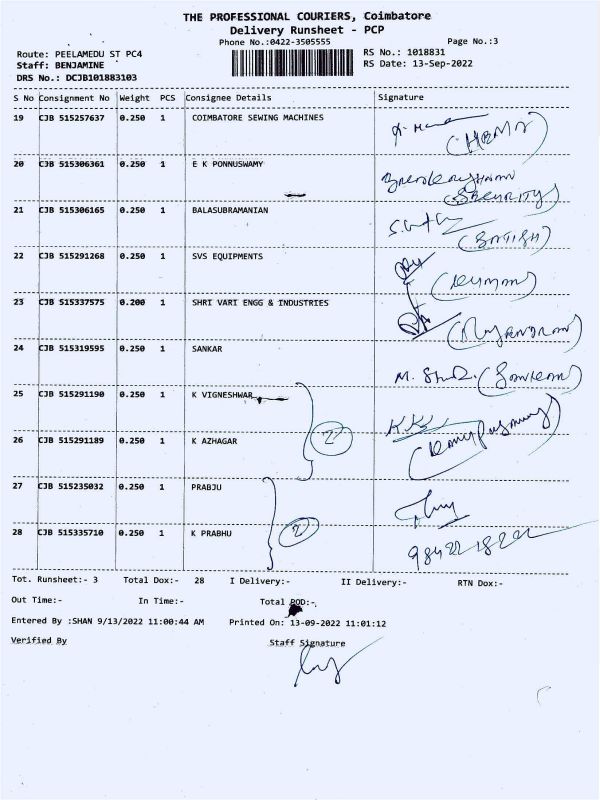 THE PROFESSIONAL COURIERS, Coimbatore
Delivery Runsheet - PCP
Phone No.:0422-3505555 Page No.:3
Route: PEELAMEDU ST PC4 RS No.: 1018831
Staff: BENJAMINE RS Date: 13-Sep-2022
DRS No.: DCJB101883103
S No Consignment No Weight PCS Consignee Details Signature
19 CJB 515257637 0.250 1 COIMBATORE SEWING MACHINES
20 CJB 515306361 0.250 1 E K PONNUSWAMY
(SECURITY)
21 CJB 515306165 0.250 1 BALASUBRAMANIAN
(SATISH)
22 CJB 515291268 0.250 1 SVS EQUIPMENTS
23 CJB 515337575 0.200 1 SHRI VARI ENGG & INDUSTRIES
24 CJB 515319595 0.250 1 SANKAR
25 CJB 515291190 0.250 1 K VIGNESHWAR
2
26 CJB 515291189 0.250 1 K AZHAGAR
27 CJB 515235032 0.250 1 PRABJU
2
28 CJB 515335710 0.250 1 K PRABHU
Tot. Runsheet:- 3 Total Dox:- 28 I Delivery:- II Delivery:- RTN Dox:-
Out Time:- In Time:- Total POD:-
Entered By :SHAN 9/13/2022 11:00:44 AM Printed On: 13-09-2022 11:01:12
Verified By Staff Signature